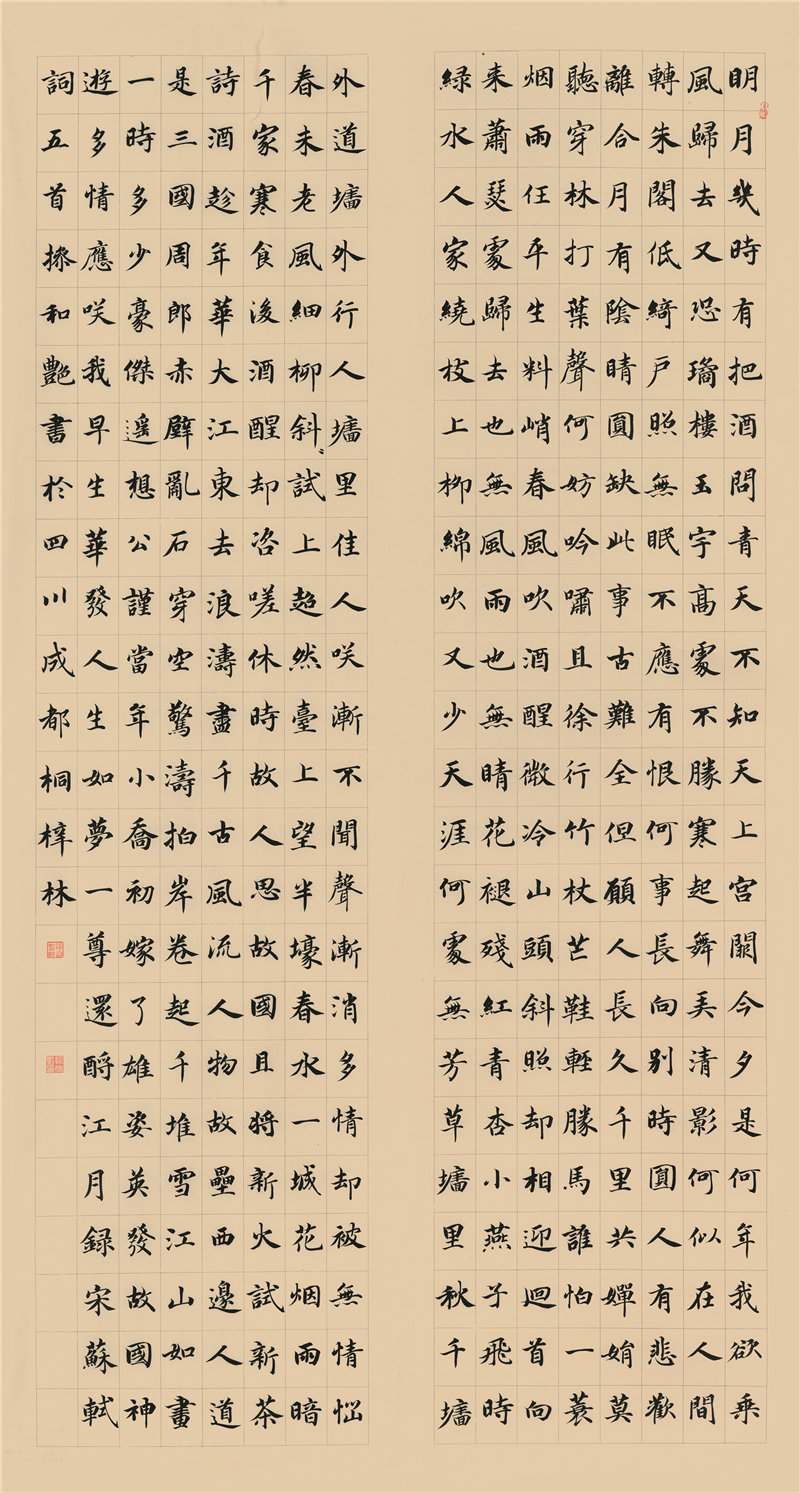 明月幾時有把酒問青天不知天上宮闕今夕是何年我欲乘
風歸去又恐瓊樓玉宇高處不勝寒起舞弄清影何似在人間
轉朱閣低綺戶照無眠不應有恨何事長向别時圓人有悲歡
離合月有陰晴圓缺此事古難全但願人長久千里共嬋娟莫
聽穿林打葉聲何妨吟嘯且徐行竹杖芒鞋輕勝馬誰怕一蓑
烟雨任平生料峭春風吹酒醒微冷山頭斜照却相迎迴首向
来蕭瑟處歸去也無風雨也無晴花褪殘紅青杏小燕子飛時
緑水人家繞枝上柳綿吹又少天涯何處無芳草墻里秋千墻
外道墻外行人墻里佳人咲漸不聞聲漸消多情却被無情惱
春未老風細柳斜〻試上超然臺上望半壕春水一城花烟雨暗
千家寒食後酒醒却咨嗟休時故人思故國且將新火試新茶
詩酒趁年華大江東去浪濤盡千古風流人物故壘西邊人道
是三國周郎赤壁亂石穿空驚濤拍岸卷起千堆雪江山如畫
一時多少豪傑遥想公謹當年小喬初嫁了雄姿英發故國神
遊多情應咲我早生華發人生如夢一尊還酹江月録宋蘇軾
詞五首和艷書於四川成都桐梓林